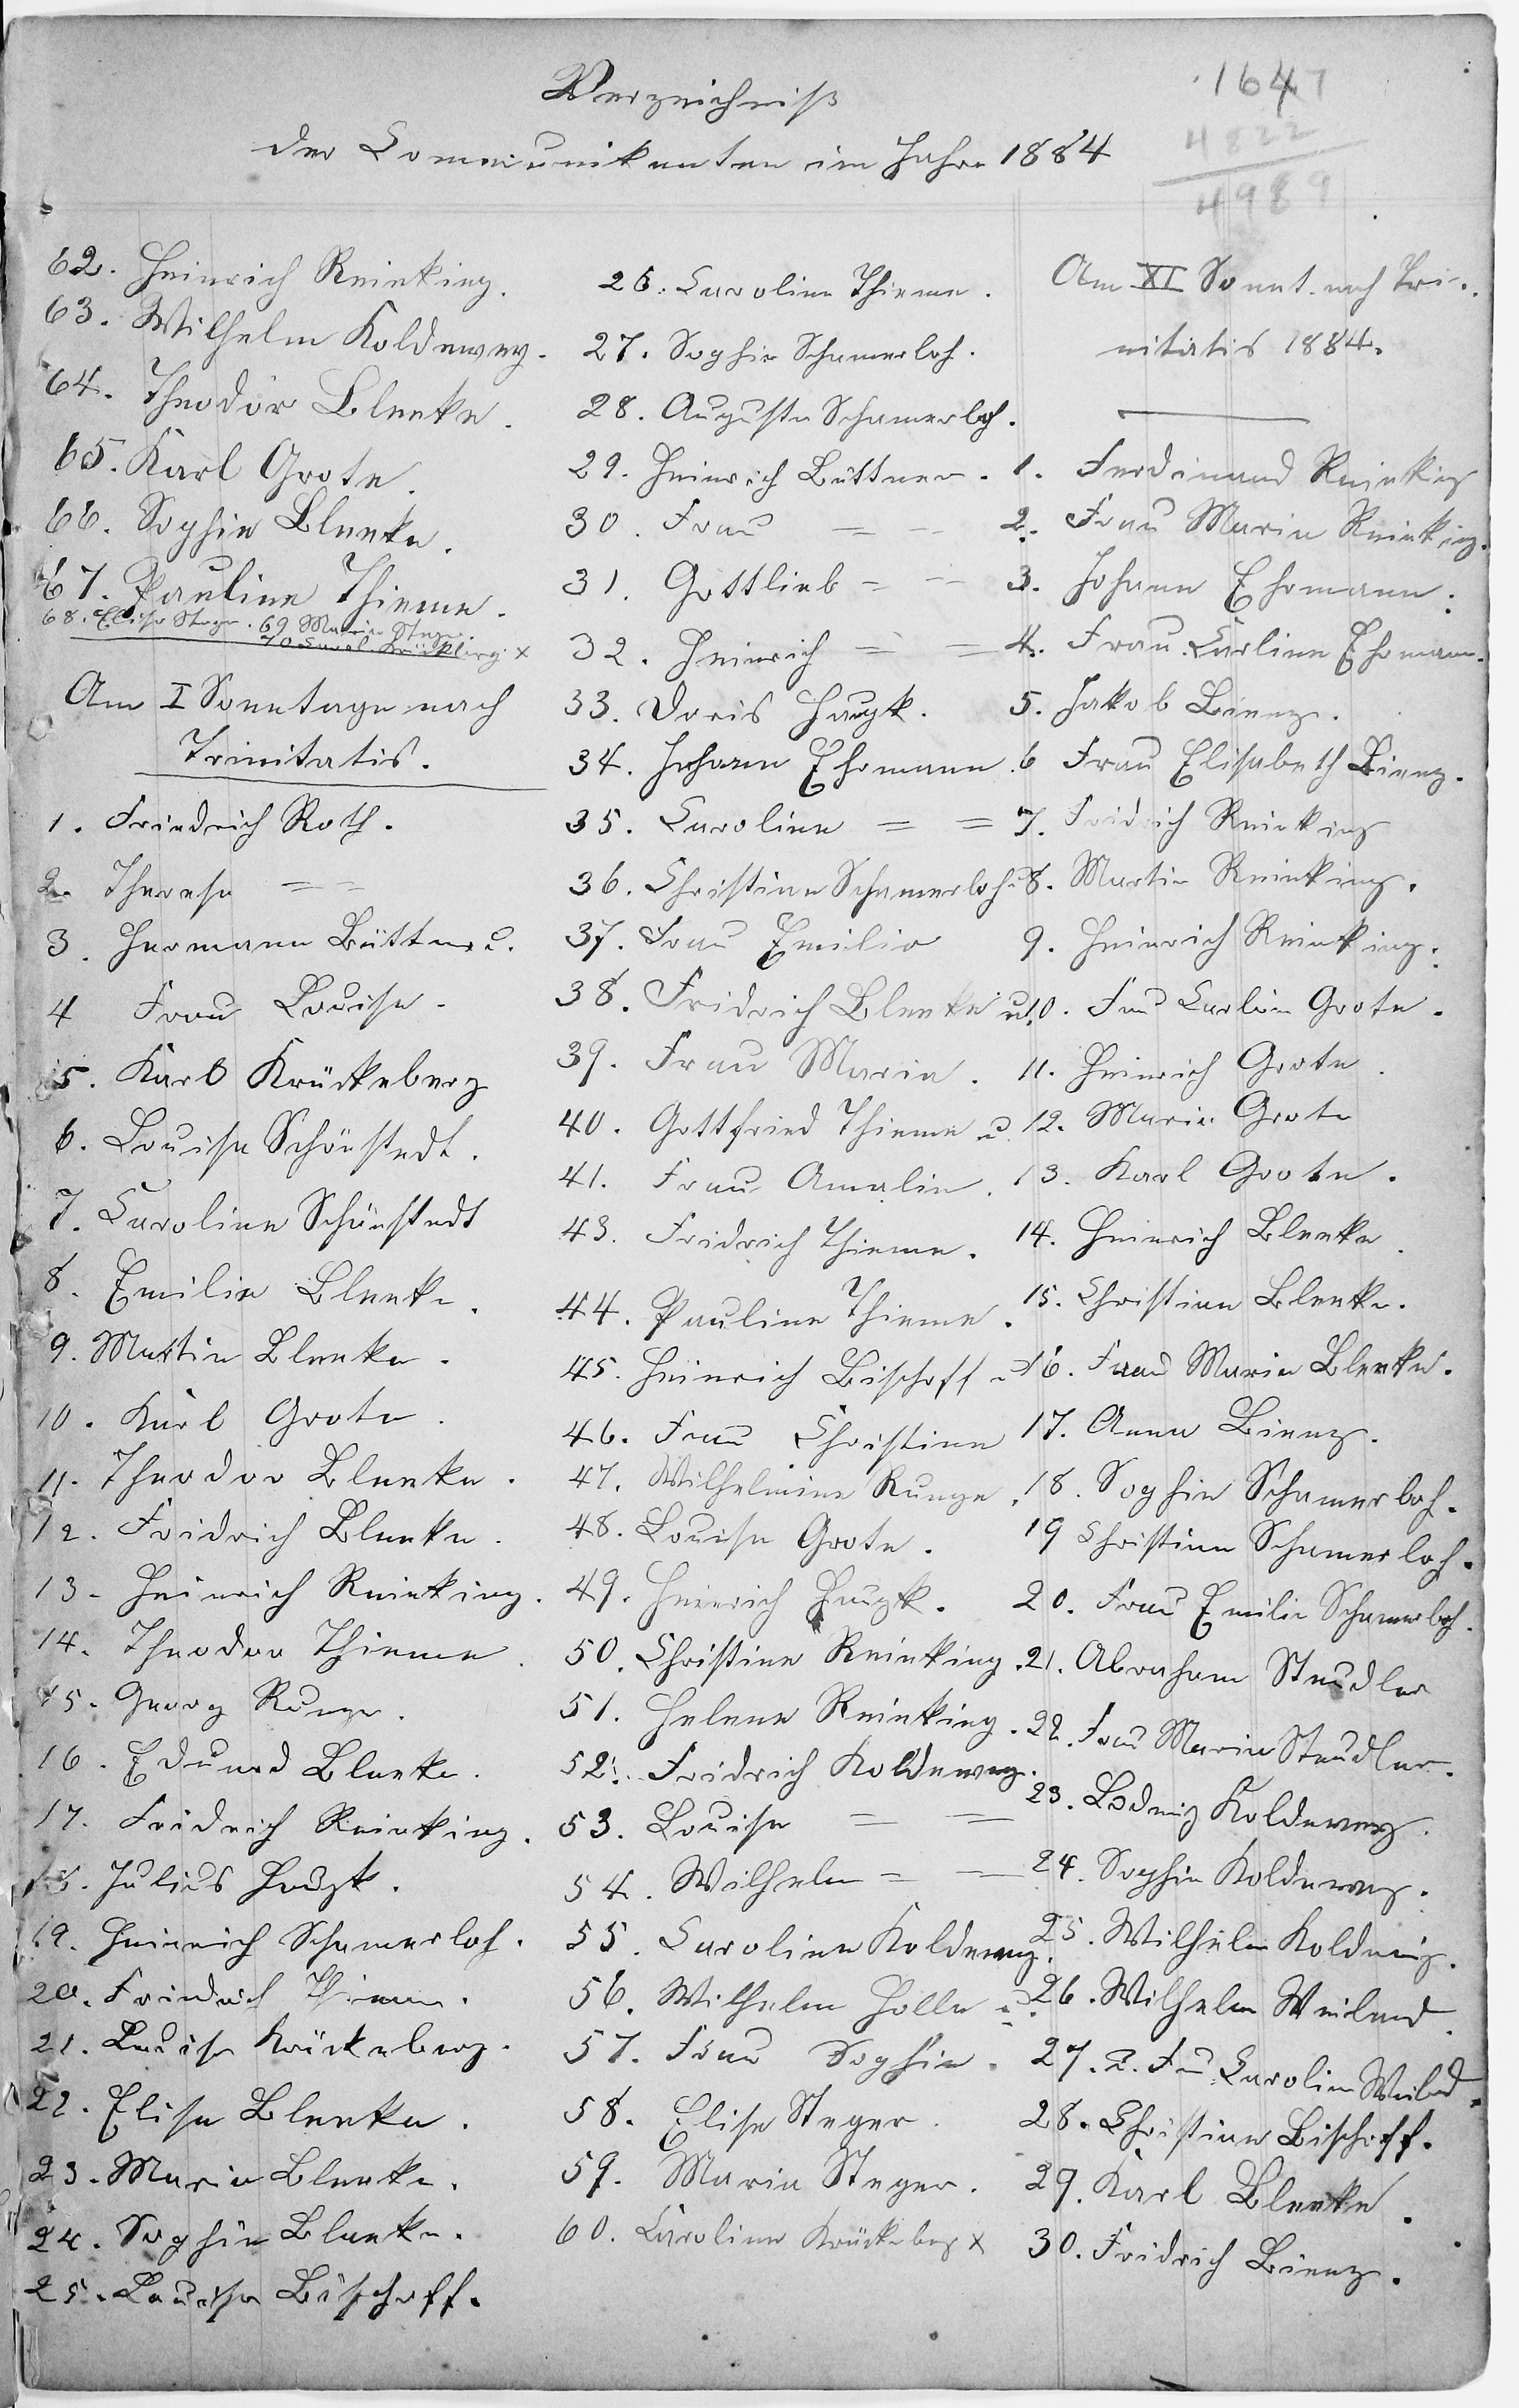 Verzeichniß
der Communikanten im Jahre 1884
1647
4822
4989
62. Heinrich Reinking.
63. Wilhelm Koldewey.
64. Theodor Bleeke.
65. Karl Grote.
66. Sophie Bleeke.
67. Pauline Thieme.
68. Elise Steger. 69 Marie Steger
70 Carol. Krückberg x
Am I Sonntage nach
Trinitatis.
1. Friedrich Roth.
2. Therese = =
3. Hermann Büttner u.
4 Frau Louise.
5. Karl Krückeberg
6. Louise Schönstedt.
7. Caroline Schönstedt
8. Emilie Bleeke.
9. Martin Bleeke.
10. Karl Grote.
11. Theodor Bleeke.
12. Fridrich Bleeke.
13. Heinrich Reinking.
14. Theodor Thieme.
15. Georg Runge.
16. Eduard Bleeke.
17. Fridrich Reinking.
18. Julius Haupt.
19. Heinrich Schamerloh.
20. Friedrich Thieme.
21. Louise Krückeberg.
22. Elise Bleeke.
23. Marie Bleeke.
24. Sophie Bleeke.
25. Louise Bischoff.
26. Caroline Thieme.
27. Sophie Schamerloh.
28. Auguste Schamerloh.
29. Heinrich Büttner.
30. Frau = =
31. Gottlieb = =
32. Heinrich = =
33. Doris Haupt.
34. Johann Ehomann.
35. Caroline = =
36. Christian Schamerloh u.
37. Frau Emilie
38. Fridrich Bleeke u.
39. Frau Maria.
40. Gottfried Thieme u.
41. Frau Amalie.
43. Fridrich Thieme.
44. Pauline Thieme.
45. Heinrich Bischoff u
46. Frau Christine
47. Wilhelmine Runge.
48. Louise Grote.
49. Heinrich Haupt.
50. Christine Reinking.
51. Helene Reinking.
52. Fridrich Koldewey.
53. Louise = =
54. Wilhelm = =
55. Caroline Koldewey.
56. Wilhelm Holle u.
57. Frau Sophie.
58. Elise Steger.
59. Marie Steger.
60. Caroline Krückeberg x
Am XI Sonnt. nach Tri-
nitatis 1884.
1. Ferdinand Reinking
2. Frau Marie Reinking.
3. Johann Ehomann.
4. Frau Carline Ehomann.
5. Jakob Bienz.
6 Frau Elisabeth Bienz.
7. Fridrich Reinking
8. Martin Reinking.
9. Heinrich Reinking.
10. Frau Carline Grote.
11. Heinrich Grote.
12. Marie Grote
13. Karl Grote.
14. Heinrich Bleeke.
15. Christian Bleeke.
16. Frau Marie Bleeke.
17. Anna Bienz.
18. Sophie Schamerloh.
19 Christian Schamerloh.
20. Frau Emilie Schamerloh.
21. Abraham Steudler
22. Frau Marie Steudler.
23. Lodwig Koldewey.
24. Sophie Koldewey.
25. Wilhelm Koldweig.
26. Wilhelm Weiland.
27. u. Fr Caroline Weiland.
28. Christian Bischoff.
29. Karl Bleeke.
30. Fridrich Bienz.